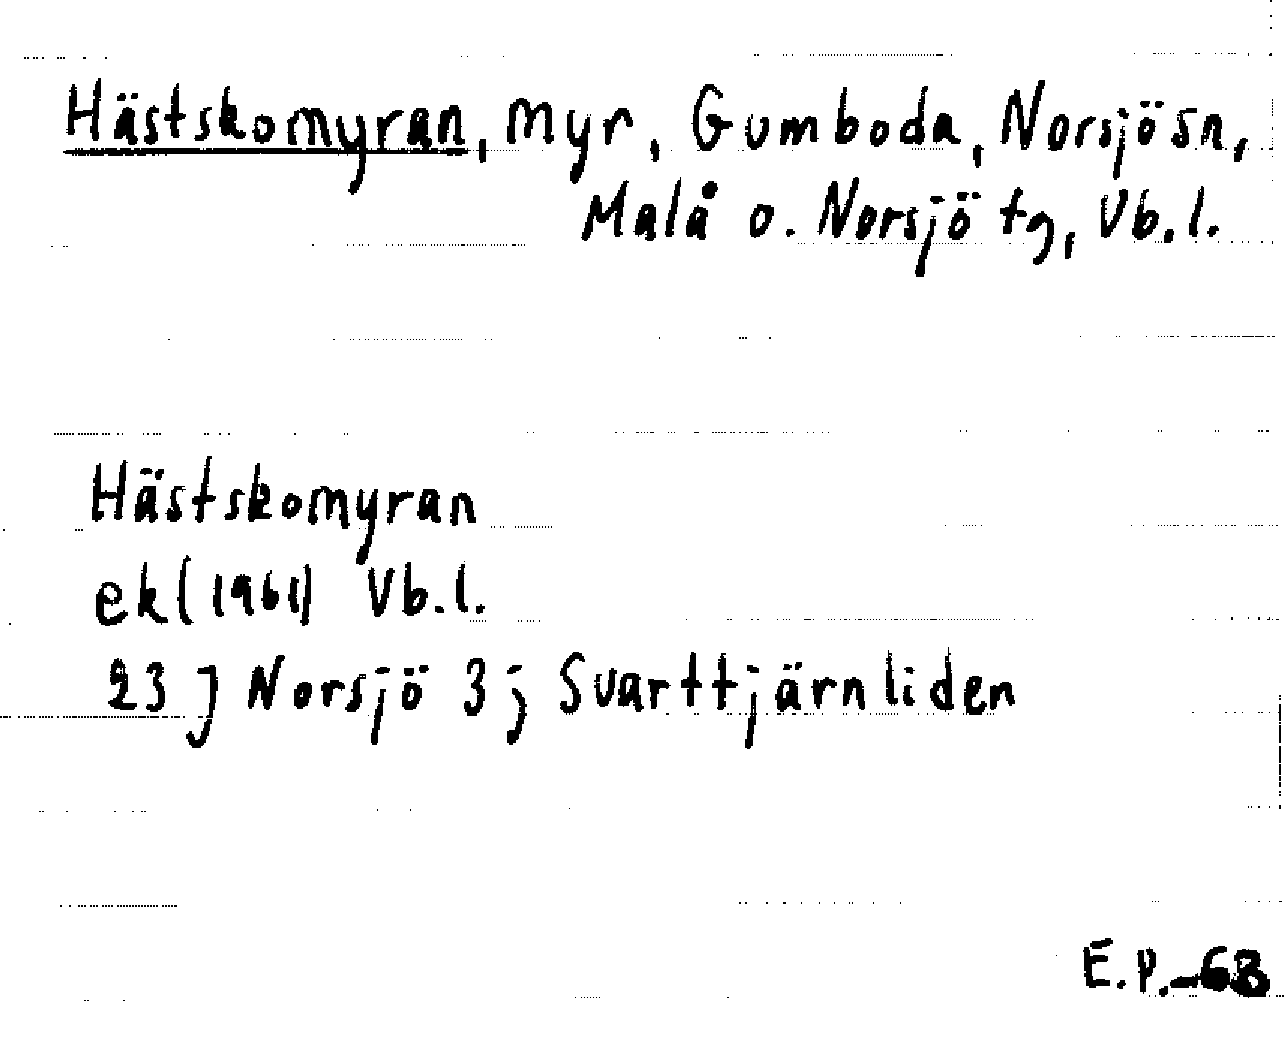 Hästskomyran, myr, Gumboda, Norsjö sn,
Malå o. Norsjö tg, Vb.l.
Hästskomyran
ek (1961) Vb.l.
23 J Norsjö 3 j Svarttjärnliden
E.P.-63